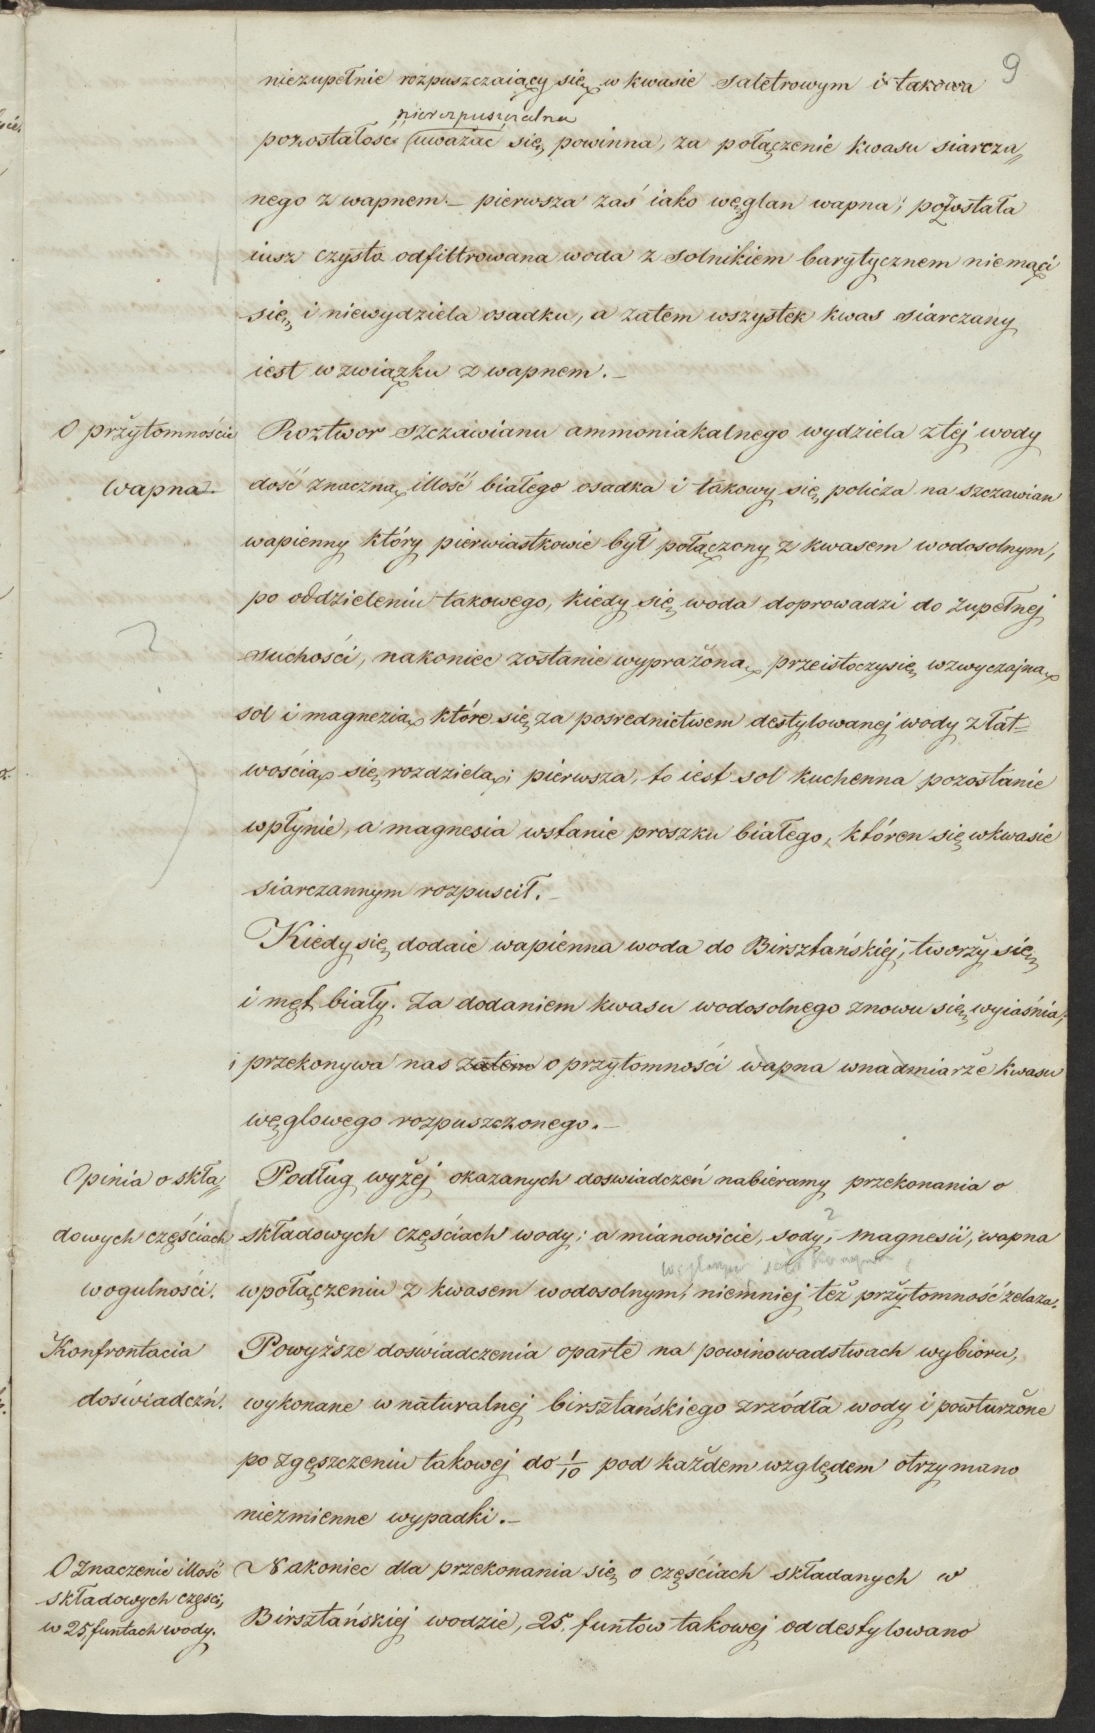 9
niezupełnie rozpuszczaiący się w kwasie saletrowym i takowa
nierozpuszczalna
pozostałosc uważać się powinna, za połączenie kwasu siarcza„
nego z wapnem. – pierwsza zaś iako węglan wapna; pozostała
iusz czysto odfiltrowana woda z solnikiem barytycznem niemąci
się i niewydziela osadku, a zatem wszystek kwas siarczany
iest w związku z wapnem. –
O przytomnościi
wapna.
Roztwor szczawianu ammoniakalnego wydziela z tej wody
dość znaczną illość białego osadka i takowy się policza na szczawian
wapienny który pierwiastkowie był połączony z kwasem wodosolnym,
po oddzieleniu takowego, kiedy się woda doprowadzi do zupełnej
suchości, nakoniec zostanie wyprażoną, przeistoczy się w zwyczajną
sol i magnezią, które się za posrednictwem destylowanej wody z łat=
wością się rozdzielą; pierwsza, to iest sol kuchenna pozostanie
w płynie, a magnesia w stanie proszku białego, któren się w kwasie
siarczannym rozpuscił. –
Kiedy się dodaie wapienna woda do Birsztańskiej, tworzy się
i męt biały. Za dodaniem kwasu wodosolnego znowu się wyiaśnia,
i przekonywa nas zatem o przytomności wapna w nadmiarze kwasu
węglowego rozpuszczonego. –
Opinia o skła„
dowych częściach
wogulności.
Podług wyżej okazanych doswiadczeń nabieramy przekonania o
składowych częściach wody; a mianowicie, sody, magnesii, wapna
w połączeniu z kwasem wodosolnym, niemniej też przytomność żelaza.
Konfrontacia
doświadczń.
Powyższe doświadczenia oparte na powinowadstwach wybioru,
wykonane w naturalnej birsztańskiego zrzódła wody i powturzone
po zgęszczeniu takowej do 1/10 pod każdem względem otrzymano
niezmienne wypadki. –
Oznaczenie illość
składowych częsci,
w 25, funtach wody.
Nakoniec dla przekonania się o częściach składanych w
Birsztańskiej wodzie, 25, funtow takowej oddestylowano